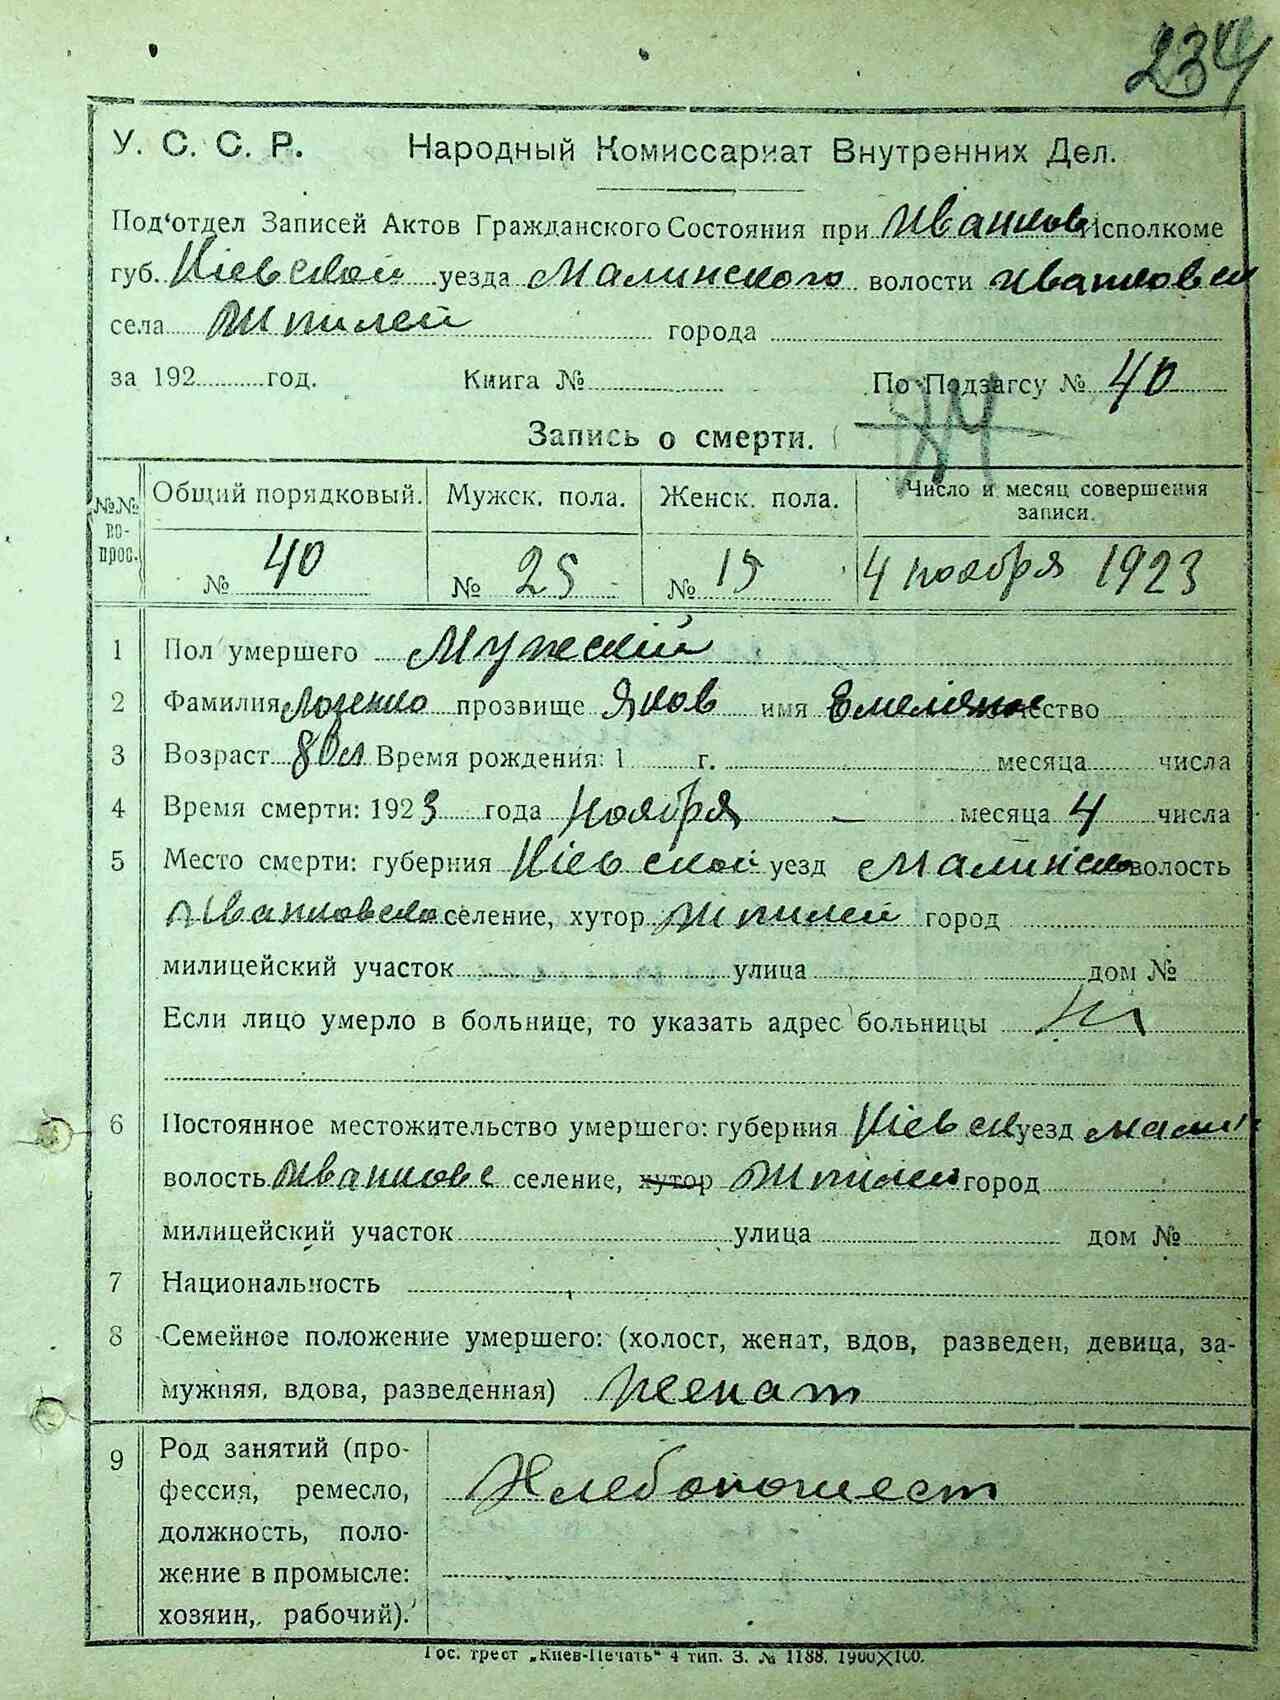 234
У. С. С. Р. Народный Комиссариат Внутренних Дел.
Под'отдел Записей Актов Гражданского Состояния при Иванков Исполкоме
губ. Кіевской уезда Малинского волости Иванковск
села Шпилей города
за 192 год. Книга № По Подзагсу № 40
Запись о смерти.
№№ вопрос. Общий порядковый. Мужск. пола. Женск. пола. Число и месяц совершения записи.
№ 40 № 25 № 15 4 ноября 1923
1 Пол умершего Мужескій
2 Фамилия прозвище Яков имя Емельянов отчество
3 Возраст 80 л Время рождения: 1 г. месяца числа
4 Время смерти: 1923 года Ноября — месяца 4 числа
5 Место смерти: губерния Кіевской уезд Малинско волость
Иванковско селение, хутор Шпилей город
милицейский участок улица дом №
Если лицо умерло в больнице, то указать адрес больницы
6 Постоянное местожительство умершего: губерния Кіевск уезд Малин
волость Иванковс селение, хутор Шпилей город
милицейский участок улица дом №
7 Национальность
8 Семейное положение умершего: (холост, женат, вдов, разведен, девица, за-
мужняя, вдова, разведенная) Женат
9 Род занятий (про-
фессия, ремесло, Хлебопошест
должность, поло-
жение в промысле:
хозяин, рабочий).
Гос. трест „Киев-Печать“ 4 тип. З. № 1188. 1900×100.